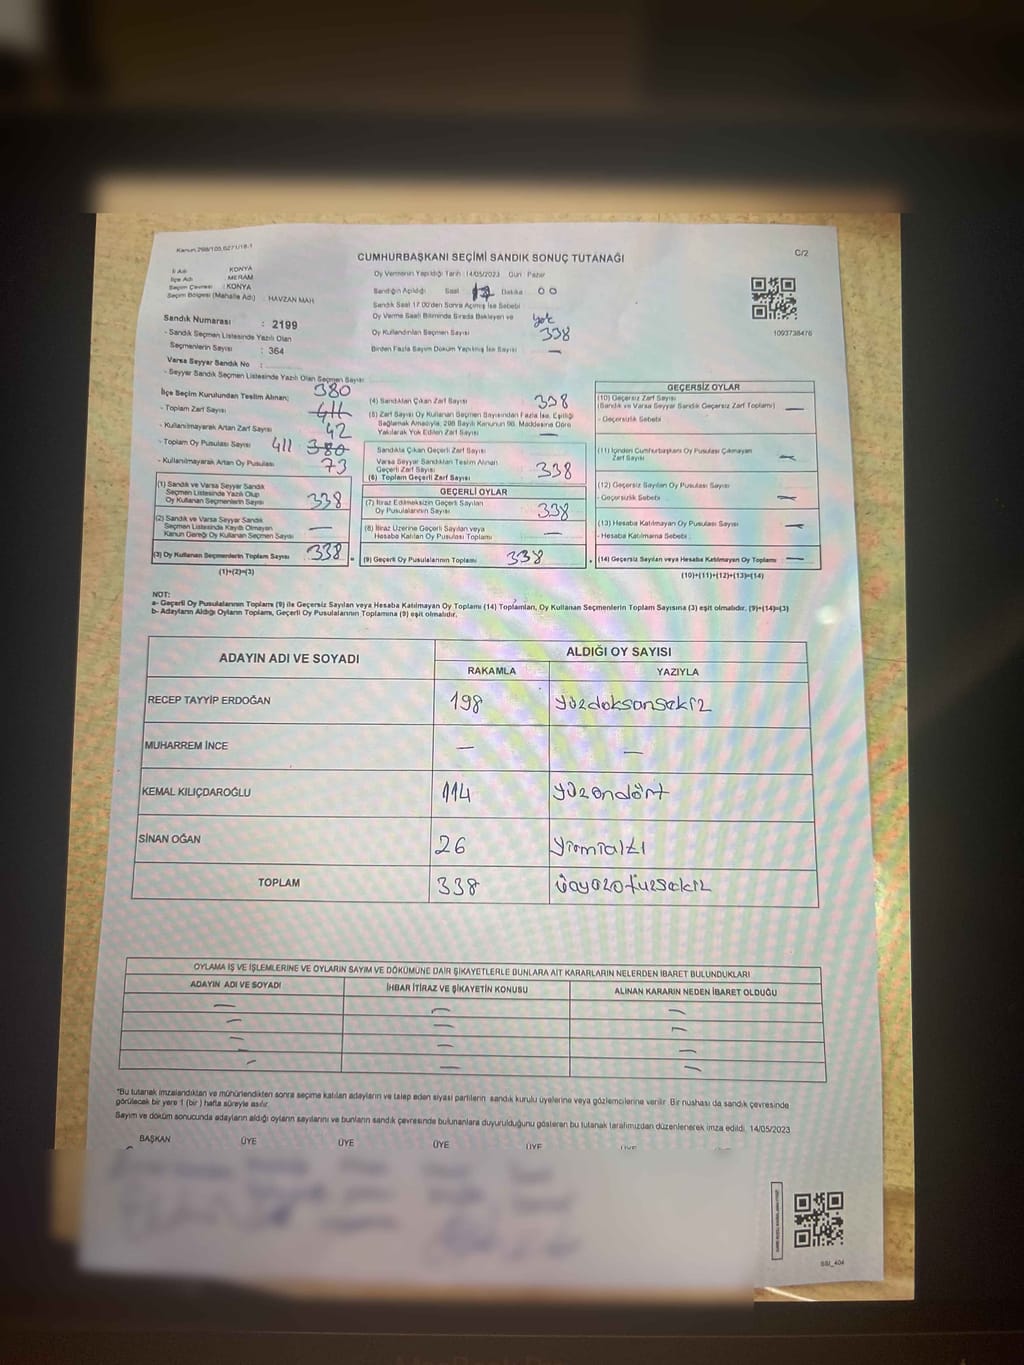 Kanun 298/105,6271/18-1
C/2
CUMHURBAŞKANI SEÇİMİ SANDIK SONUÇ TUTANAĞI
İl Adı : KONYA
İlçe Adı : MERAM
Seçim Çevresi : KONYA
Seçim Bölgesi (Mahalle Adı) : HAVZAN MAH
Oy Vermenin Yapıldığı Tarih : 14/05/2023 Gün : Pazar
Sandığın Açıldığı Saat : Dakika : 00
Sandık Saat 17.00'den Sonra Açılmış İse Sebebi
Oy Verme Saati Bitiminde Sırada Bekleyen ve yok
Oy Kullandırılan Seçmen Sayısı 338
Birden Fazla Sayım Döküm Yapılmış İse Sayısı —
1093738476
Sandık Numarası : 2199
- Sandık Seçmen Listesinde Yazılı Olan
Seçmenlerin Sayısı : 364
Varsa Seyyar Sandık No :
- Seyyar Sandık Seçmen Listesinde Yazılı Olan Seçmen Sayısı:
İlçe Seçim Kurulundan Teslim Alınan; 380
- Toplam Zarf Sayısı 411
- Kullanılmayarak Artan Zarf Sayısı 42
- Toplam Oy Pusulası Sayısı 411 380
- Kullanılmayarak Artan Oy Pusulası 73
(1) Sandık ve Varsa Seyyar Sandık
Seçmen Listesinde Yazılı Olup
Oy Kullanan Seçmenlerin Sayısı 338
(2) Sandık ve Varsa Seyyar Sandık
Seçmen Listesinde Kayıtlı Olmayan
Kanun Gereği Oy Kullanan Seçmen Sayısı —
(3) Oy Kullanan Seçmenlerin Toplam Sayısı 338
(1)+(2)=(3)
(4) Sandıktan Çıkan Zarf Sayısı 338
(5) Zarf Sayısı Oy Kullanan Seçmen Sayısından Fazla İse, Eşitliği
Sağlamak Amacıyla, 298 Sayılı Kanunun 98. Maddesine Göre
Yakılarak Yok Edilen Zarf Sayısı —
Sandıkta Çıkan Geçerli Zarf Sayısı
Varsa Seyyar Sandıktan Teslim Alınan
Geçerli Zarf Sayısı
(6) Toplam Geçerli Zarf Sayısı 338
GEÇERLİ OYLAR
(7) İtiraz Edilmeksizin Geçerli Sayılan
Oy Pusulalarının Sayısı 338
(8) İtiraz Üzerine Geçerli Sayılan veya
Hesaba Katılan Oy Pusulası Toplamı —
= (9) Geçerli Oy Pusulalarının Toplamı 338
GEÇERSİZ OYLAR
(10) Geçersiz Zarf Sayısı
(Sandık ve Varsa Seyyar Sandık Geçersiz Zarf Toplamı) —
- Geçersizlik Sebebi :
(11) İçinden Cumhurbaşkanı Oy Pusulası Çıkmayan
Zarf Sayısı —
(12) Geçersiz Sayılan Oy Pusulası Sayısı
- Geçersizlik Sebebi : —
(13) Hesaba Katılmayan Oy Pusulası Sayısı —
- Hesaba Katılmama Sebebi :
+ (14) Geçersiz Sayılan veya Hesaba Katılmayan Oy Toplamı —
(10)+(11)+(12)+(13)=(14)
NOT:
a- Geçerli Oy Pusulalarının Toplamı (9) ile Geçersiz Sayılan veya Hesaba Katılmayan Oy Toplamı (14) Toplamları, Oy Kullanan Seçmenlerin Toplam Sayısına (3) eşit olmalıdır. (9)+(14)=(3)
b- Adayların Aldığı Oyların Toplamı, Geçerli Oy Pusulalarının Toplamına (9) eşit olmalıdır.
ADAYIN ADI VE SOYADI
ALDIĞI OY SAYISI
RAKAMLA YAZIYLA
RECEP TAYYİP ERDOĞAN 198 yüzdoksansekiz
MUHARREM İNCE — —
KEMAL KILIÇDAROĞLU 114 yüzondört
SİNAN OĞAN 26 yirmialtı
TOPLAM 338 üçyüzotuzsekiz
OYLAMA İŞ VE İŞLEMLERİNE VE OYLARIN SAYIM VE DÖKÜMÜNE DAİR ŞİKAYETLERLE BUNLARA AİT KARARLARIN NELERDEN İBARET BULUNDUKLARI
ADAYIN ADI VE SOYADI İHBAR İTİRAZ VE ŞİKAYETİN KONUSU ALINAN KARARIN NEDEN İBARET OLDUĞU
— — —
— — —
— — —
— — —
"Bu tutanak imzalandıktan ve mühürlendikten sonra seçime katılan adayların ve talep eden siyasi partilerin sandık kurulu üyelerine veya gözlemcilerine verilir. Bir nushası da sandık çevresinde
görülecek bir yere 1 (bir ) hafta süreyle asılır.
Sayım ve döküm sonucunda adayların aldığı oyların sayılarını ve bunların sandık çevresinde bulunanlara duyurulduğunu gösteren bu tutanak tarafımızdan düzenlenerek imza edildi. 14/05/2023
BAŞKAN ÜYE ÜYE ÜYE ÜYE ÜYE
SSI_404